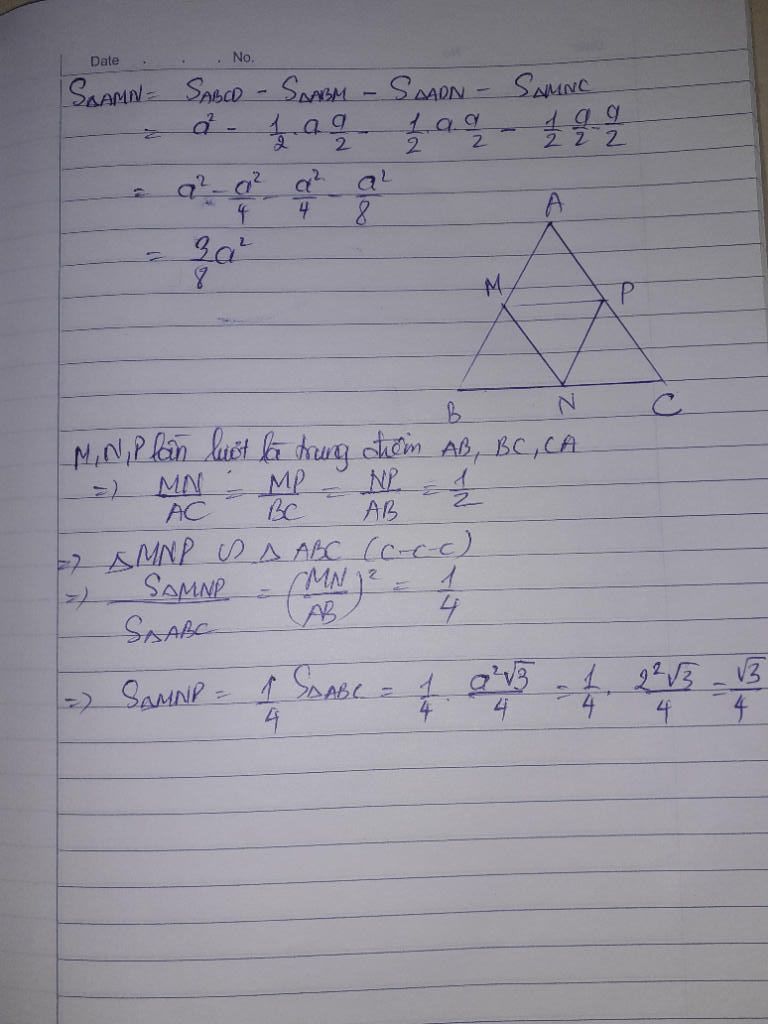 Date . . . No.
S△AMN = SABCD - S△ABM - S△ADN - S△MNC
= a² - 1/2 . a a/2 - 1/2 . a a/2 - 1/2 a/2 . a/2
= a² - a²/4 - a²/4 - a²/8
= 3/8 a²
A
M P
B N C
M, N, P lần lượt là trung điểm AB, BC, CA
=> MN/AC = MP/BC = NP/AB = 1/2
=> △MNP ∽ △ABC (c-c-c)
=> S△MNP/S△ABC = (MN/AB)² = 1/4
=> S△MNP = 1/4 S△ABC = 1/4 . a²√3/4 = 1/4 . 2²√3/4 = √3/4